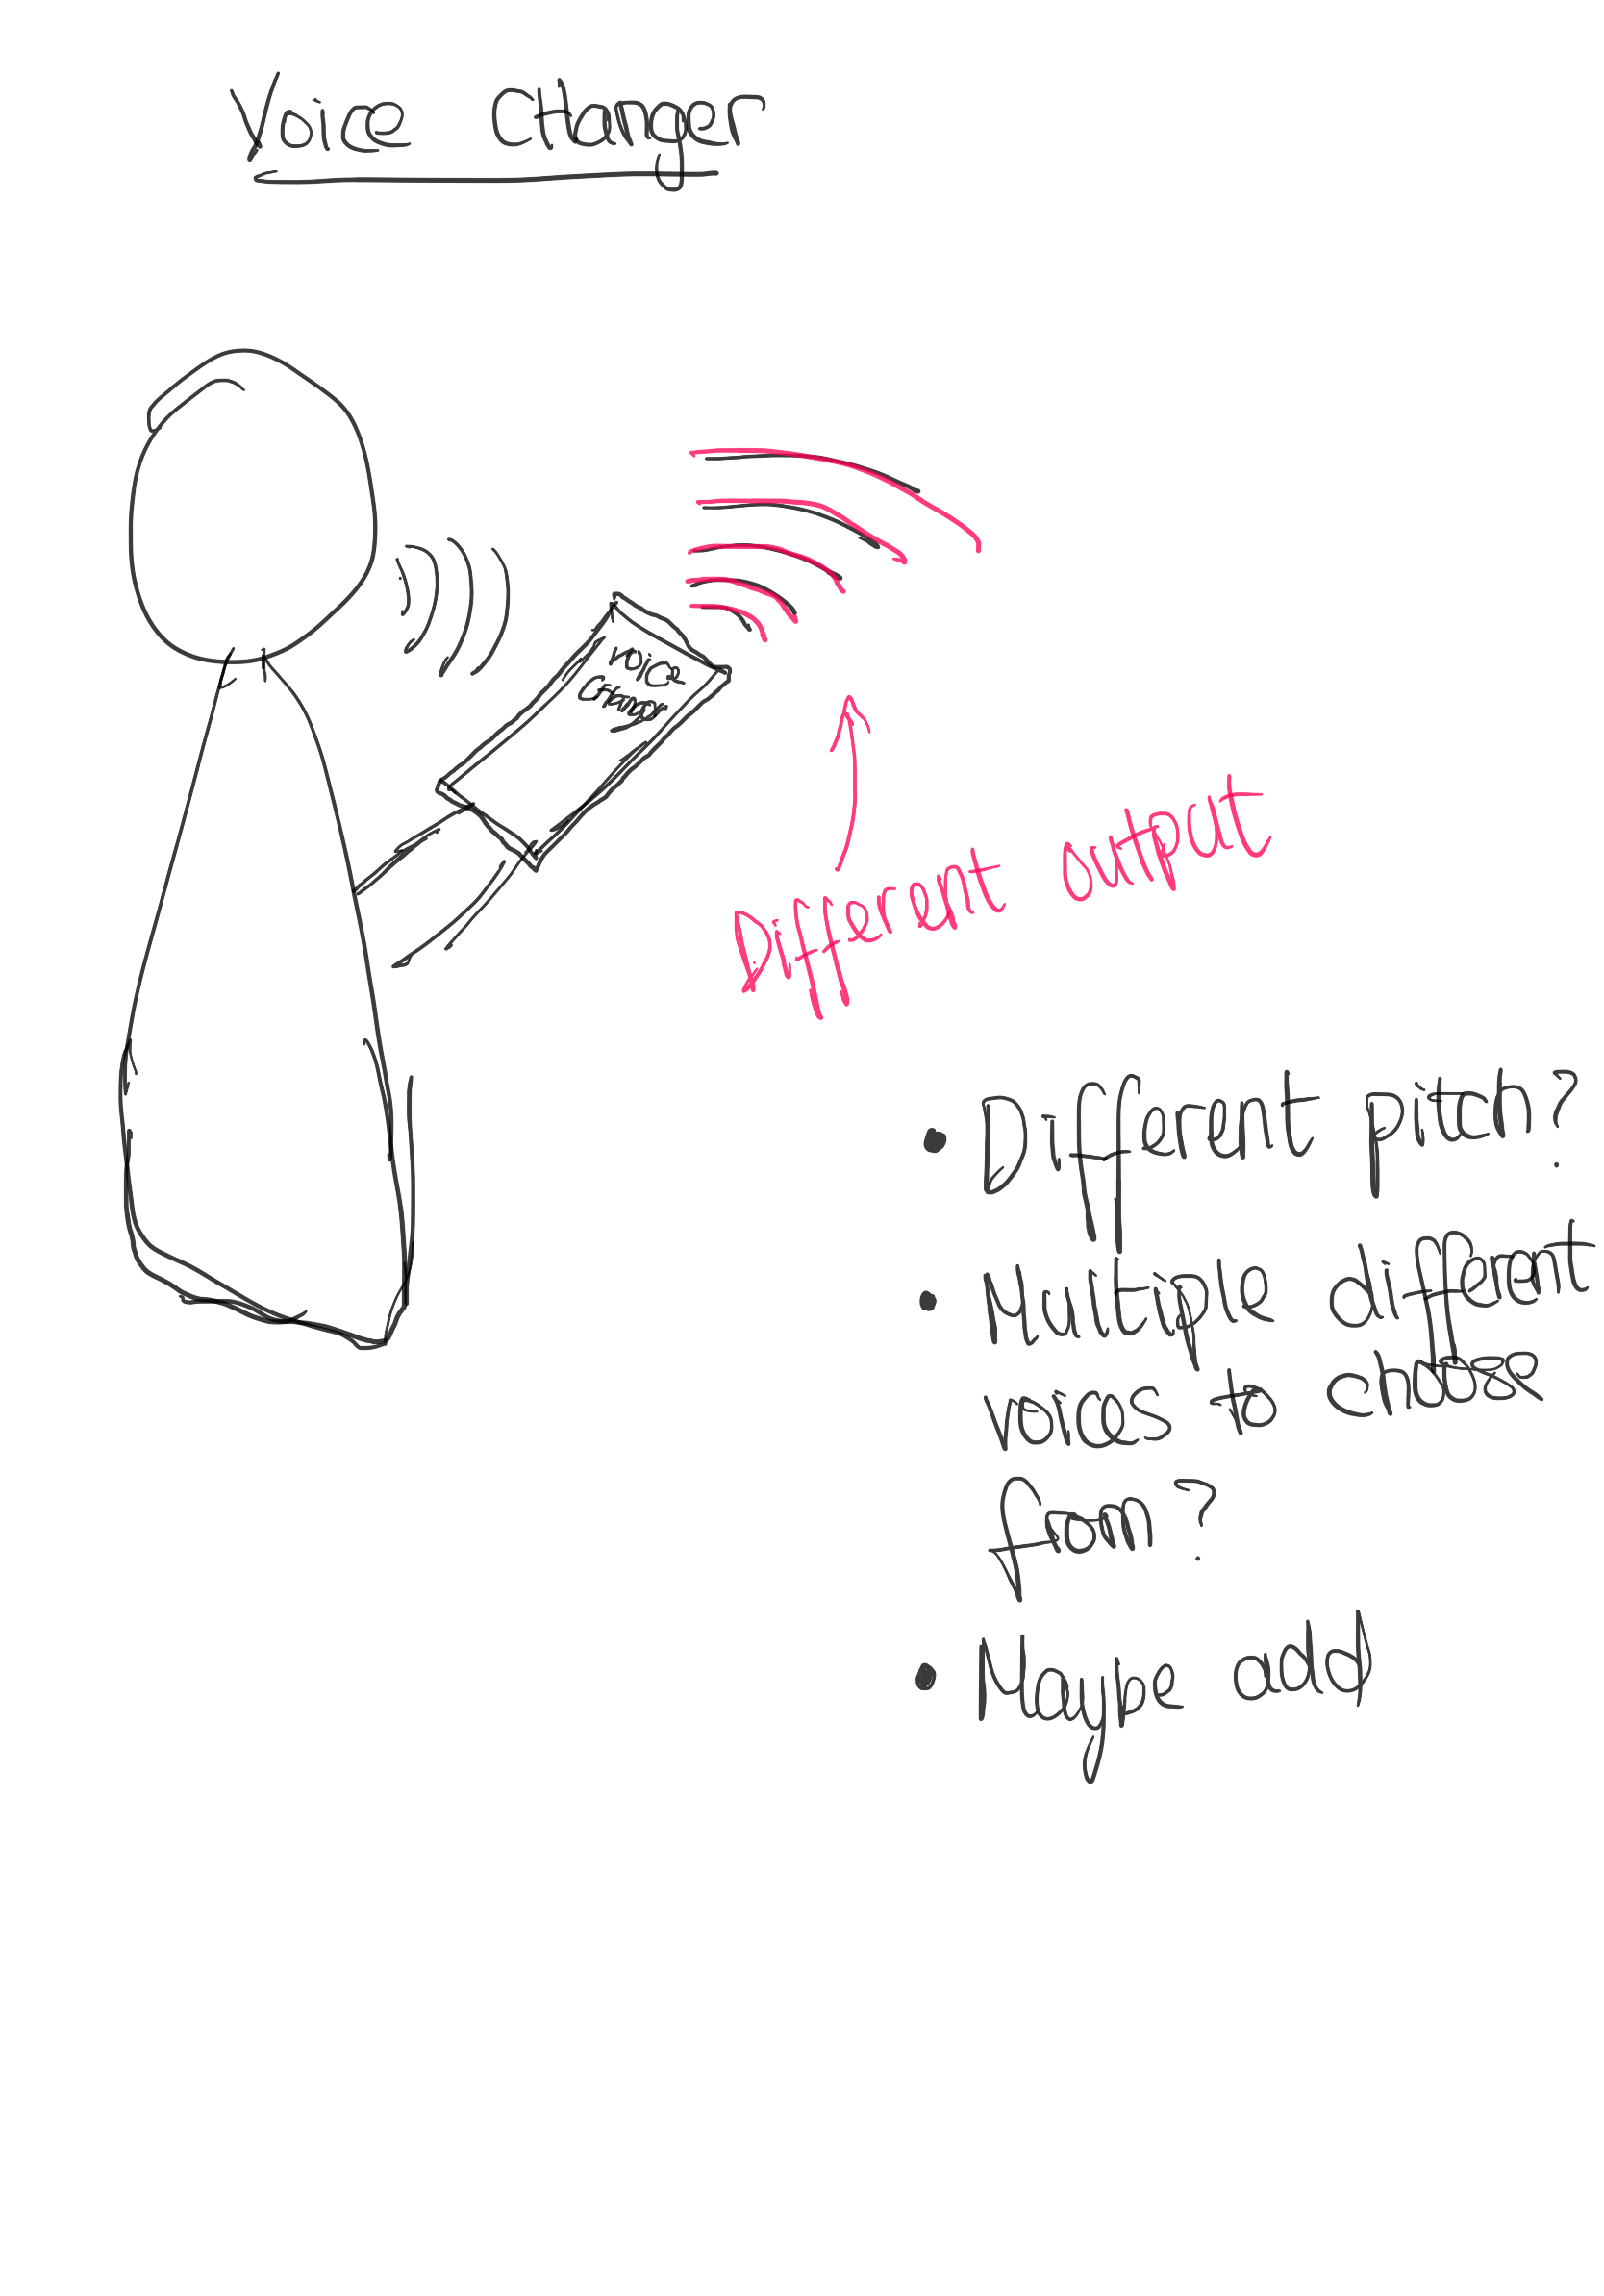 Voice Changer
Voice
Changer
Different output
• Different pitch?
• Multiple different
voices to choose
from?
• Maybe add